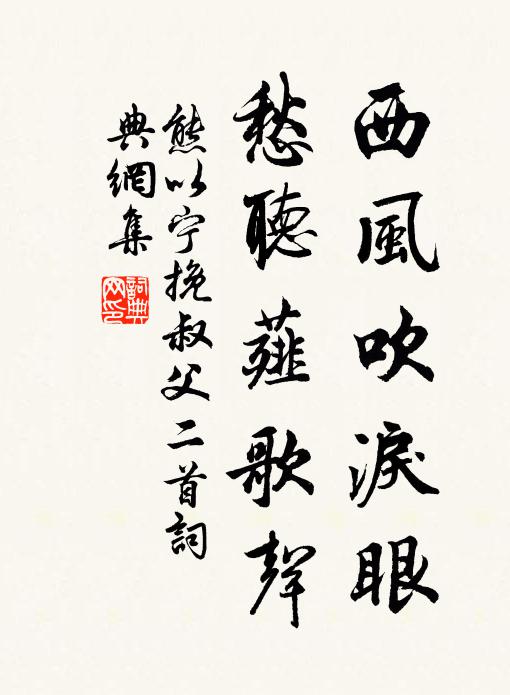 西風吹淚眼
愁聽薤歌聲
熊以宁挽叔父二首詞
典網集
詞典
网印